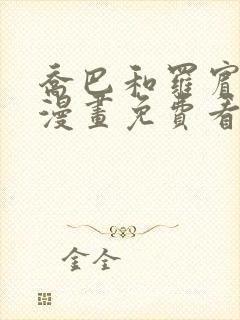 喬巴和羅賓
漫畫免費看
金全